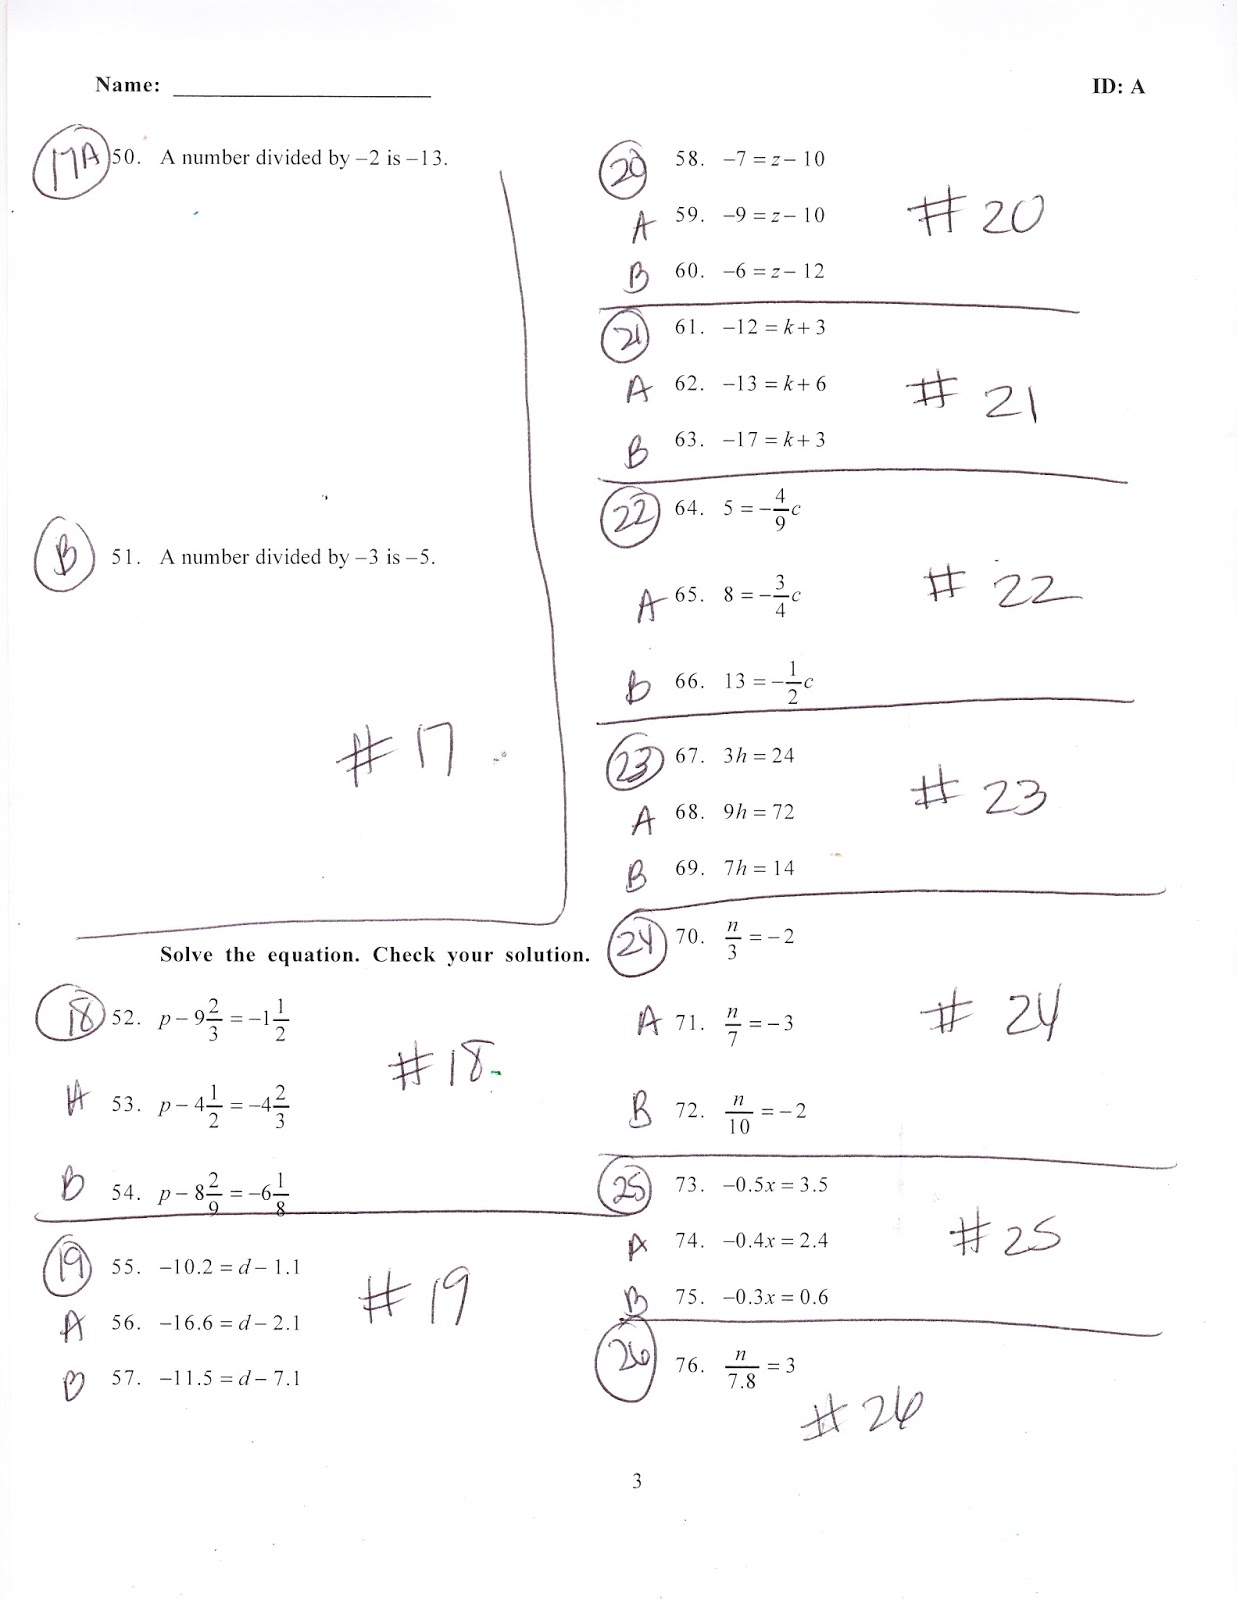 Name: ____________________ ID: A
17A 50. A number divided by –2 is –13.
B 51. A number divided by –3 is –5.
# 17
Solve the equation. Check your solution.
18 52. p – 9 2/3 = –1 1/2
A 53. p – 4 1/2 = –4 2/3
# 18
B 54. p – 8 2/9 = –6 1/8
19 55. –10.2 = d – 1.1
A 56. –16.6 = d – 2.1
# 19
B 57. –11.5 = d – 7.1
20 58. –7 = z – 10
A 59. –9 = z – 10
# 20
B 60. –6 = z – 12
21 61. –12 = k + 3
A 62. –13 = k + 6
# 21
B 63. –17 = k + 3
22 64. 5 = –4/9 c
A 65. 8 = –3/4 c
# 22
B 66. 13 = –1/2 c
23 67. 3h = 24
A 68. 9h = 72
# 23
B 69. 7h = 14
24 70. n/3 = –2
A 71. n/7 = –3
# 24
B 72. n/10 = –2
25 73. –0.5x = 3.5
A 74. –0.4x = 2.4
# 25
B 75. –0.3x = 0.6
26 76. n/7.8 = 3
# 26
3